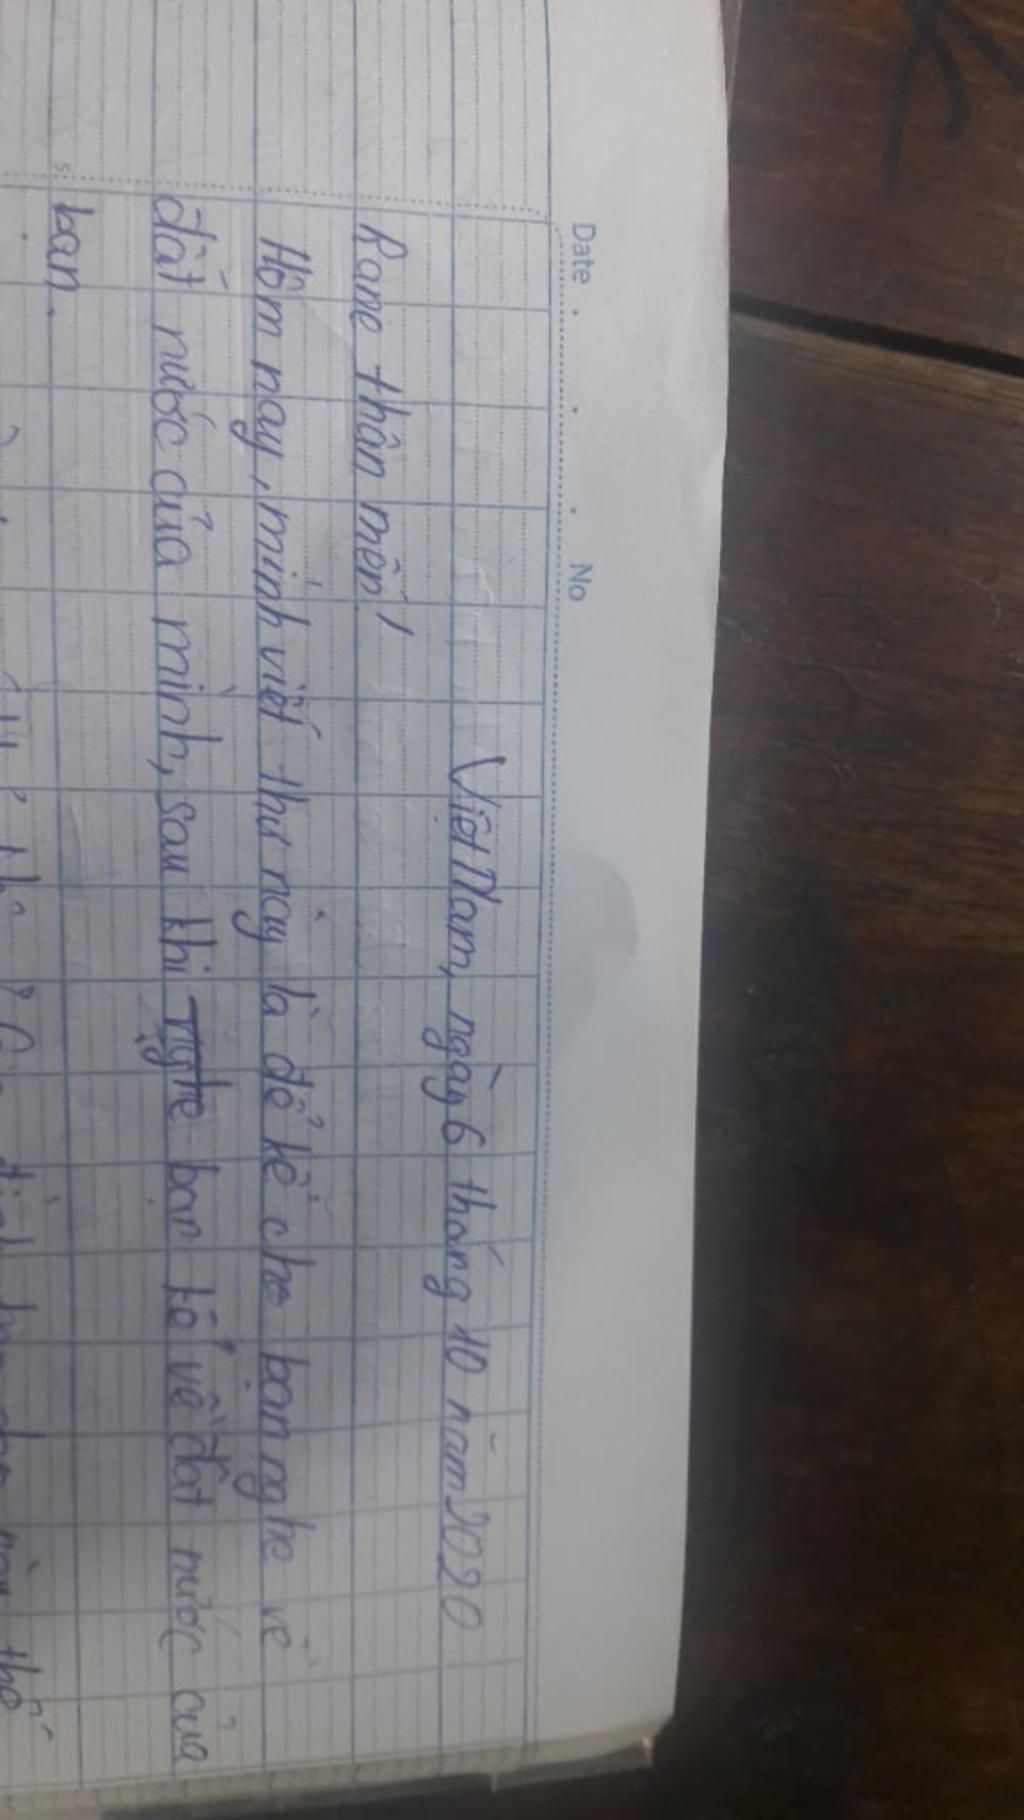 Date . . . No
Việt Nam, ngày 6 tháng 10 năm 2020
thân mến!
Hôm nay, mình viết thư này là để kể cho bạn nghe về
đất nước của mình, sau khi nghe bạn kể về đất nước của
bạn.